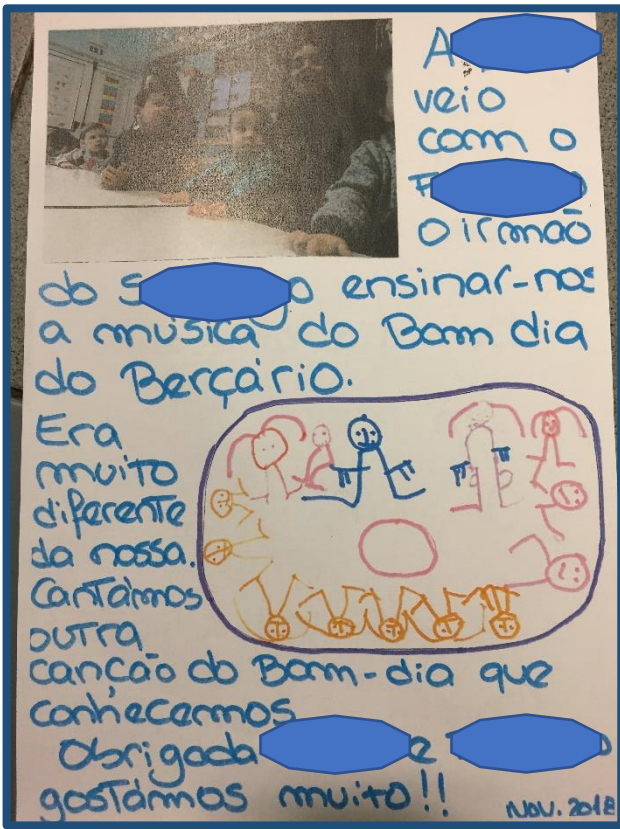 A
veio
com o
F
o irmão
do S o ensinar-nos
a música do Bom dia
do Berçário.
Era
muito
diferente
da nossa.
Cantámos
outra
canção do Bom-dia que
conhecemos
Obrigada e o
gostámos muito!!
NOV. 2018